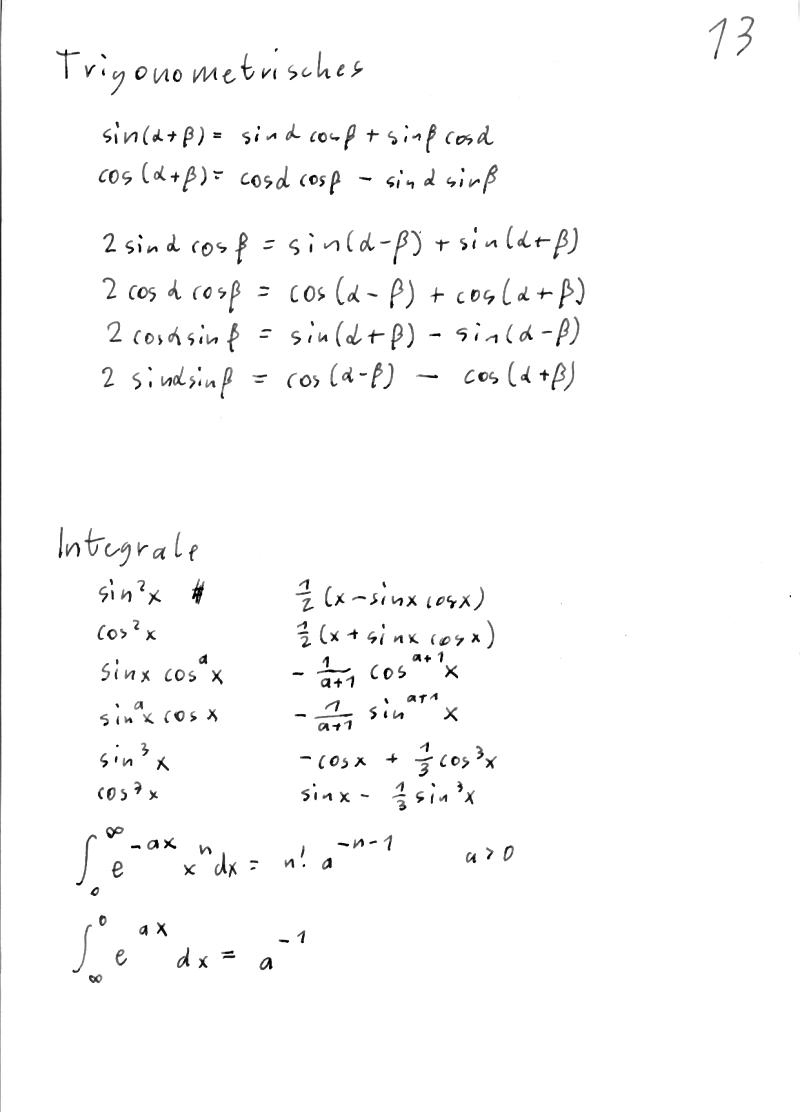 13
Trigonometrisches
sin(α+β) = sinα cosβ + sinβ cosα
cos(α+β) = cosα cosβ − sinα sinβ
2 sinα cosβ = sin(α−β) + sin(α+β)
2 cosα cosβ = cos(α−β) + cos(α+β)
2 cosα sinβ = sin(α+β) − sin(α−β)
2 sinα sinβ = cos(α−β) − cos(α+β)
Integrale
sin²x 1/2 (x − sinx cosx)
cos²x 1/2 (x + sinx cosx)
sinx cosᵃx − 1/(a+1) cosᵃ⁺¹x
sinᵃx cosx − 1/(a+1) sinᵃ⁺¹x
sin³x −cosx + 1/3 cos³x
cos³x sinx − 1/3 sin³x
∫₀^∞ e^(−ax) xⁿ dx = n! a^(−n−1) a>0
∫_∞^0 e^(ax) dx = a^(−1)